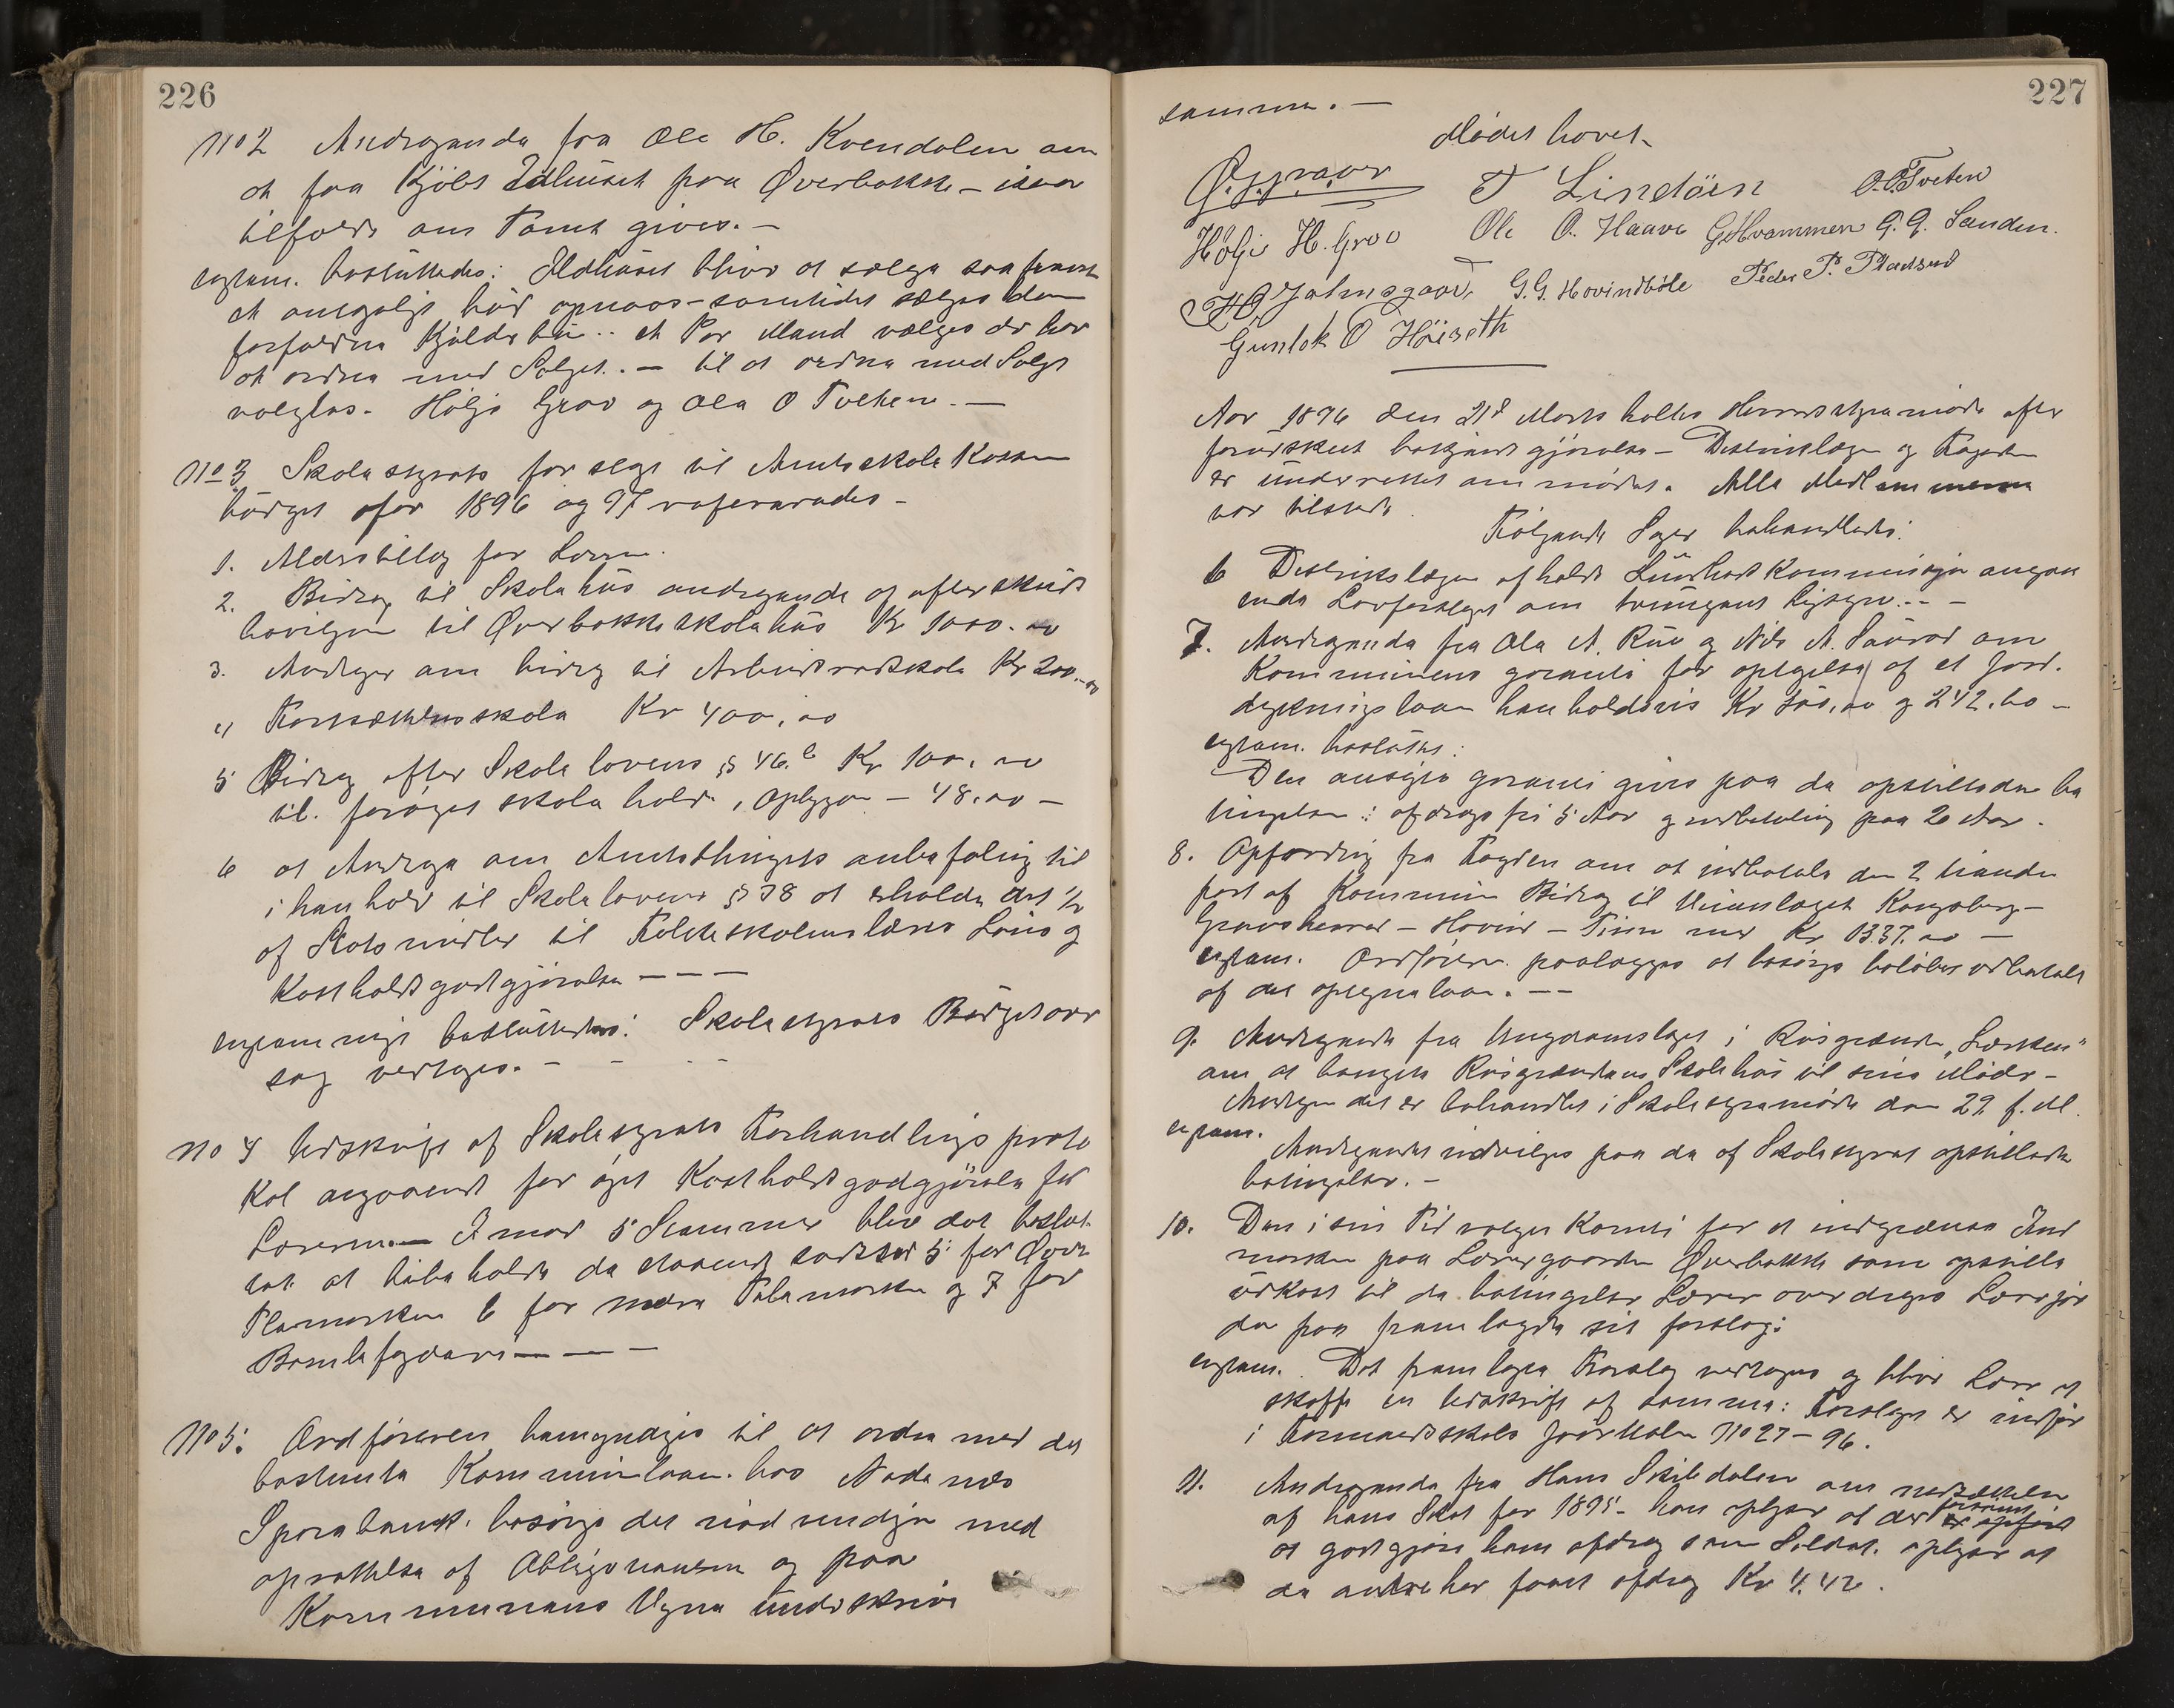 226
No 2 Andragende fra Ole H. Kvendalen om
at faa kjøbt Ildhuset paa Øverbakke – isaa
tilfælde om Tomt gives. –
enstem. besluttedes: Ildhuset bliver at sælge saafremt
et antageligt bud opnaaes – samtidet sælges den
forfaldna Kjølda bu.. et Par Mand vælges der har
at ordna med Salget. – til at ordna med Salget
valgtes. Høljе Grov og Ola O Tveten. –
No 3 Skolestyrets forslag til Amtsskole Kassen
budget for 1896 og 97 refereredes –
1. Alderstillæg for Læren.
2. Bidrag til Skolehus andragende og efterskuds
bevilgn til Øverbakke skolehus Kr 1000.00
3. Andrager om bidrag til Arbeidsskole Kr 200.00
4 Fortsættelsesskole Kr 400,00
5 Bidrag efter Skolelovens § 46.b Kr 100,00
til forøget skolehold, oplyggn – 48,00 –
6 at Andrage om Amtsthingets anbefaling til
i henhold til Skolelovens § 38 at erholde det 1/2
af Statsmidler til Folkeskolens læres Løn og
Kostholdsgodtgjørelse – – –
enstemmigt besluttedes: Skolestyrets Budgetover
sag vertages. – – – –
No 4 Udskrift af Skolestyrets Forhandlingsproto
kol angaaende for øget Kostholdsgodtgjørelse for
Læren. – Imod 5 Stemmer blev det beslut-
tet at bibeholde de staaende satser 5 for Øvr
Tlemarken 6 for nedre Telemarken og 7 for
Bamlefogderi – – –
No 5. Ordføreren bemyndiges til at ordne med det
bestemte Kommunelaan hos Nedenæs
Sparebank. besørge det nødvendige med
oprettelse af Obligationen og paa
Kommunens Vegne underskrive
227
samme. –
Mødet hævet.
Ø. Graver T Lindöen O.O. Tveten
Høljе H. Grov Ole O. Haave G Hvammen G. G. Sanden.
H Jalmsgaard, G. G. Hovindbøle Peder P. Pladsend
Gunlek O Höiseth
Aar 1896 den 21d Marts holtes Herredsstyremøde efter
forudskeet bekjendtgjørelse – Distriktslægen og Fogden
er underrettet om mødet. Alle Medlemmerne
var tilstede.
Følgende Sager behandledes:
6 Distriktslægen afholdt Sundhedskommission angaa
ende Lovforslaget om tvungent ligsyn. – –
7. Andragende fra Ola A. Rue og Nils A. Saurar om
Kommunens garanti for optagelse af et Jord.
dyrkningslaan henholdsvis Kr 500,00 og 242.60 –
enstem. besluttes:
Den ansøgte garanti gives paa de opstillede be
tingelser: afdrags fri 5 Aar og nedbetaling paa 20 Aar.
8. Opfordring fra Fogden om at indbetale den 2 trande
part af Kommune Bidrag til Veianlæget Kongsberg –
Gravsherred – Hovin – Tinn med Kr 1337.00 –
enstem. Ordføren paalægges at besørge beløbet udbetalt
af det optagne laan. – –
9. Andragende fra Ungdomslaget i Rusgrænden „Lærken"
om at benytte Rusgrændens Skolehus til sine Møder –
Andragendet er behandlet i Skolestyremøde den 29 f. M.
enstem.
Andragendet indvilges paa de af Skolestyret opstillede
betingelser. –
10. Den i sin Tid valgte Komite for at indgrænse Ind
marken paa Lærergaarden Øverbakke som opstille
udkast til de betingelser Lærer overdrages Lærerjor
den paa fremlagde sit forslag:
enstem. Det fremlagte Forslag vertages og bliver Lærer at
skaffe en Udskrift af samme: Forslaget er indfør
i Formandsskabs Journalen No 27 – 96.
11. Andragende fra Hans Skibdalen om nedsættelse
af hans Skat for 1895 – han oplyser at det forsømt
at godtgjøre ham afdrag som Soldat. oplyser at
de andre har faaet afdrag Kr 4,42.